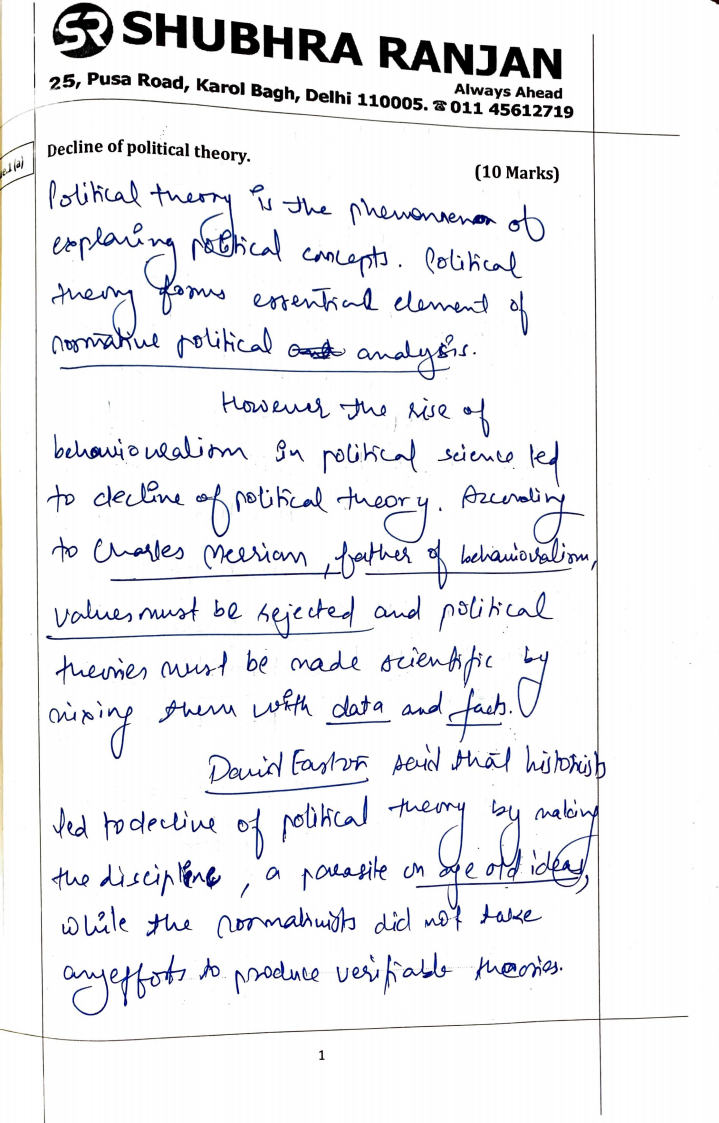 SR SHUBHRA RANJAN
Always Ahead
25, Pusa Road, Karol Bagh, Delhi 110005. ☎ 011 45612719
Decline of political theory.
(10 Marks)
Political theory is the phenomenon of
explaing political concepts. Political
theory forms essential element of
normative political analysis.
However the rise of
behaviouralism in political science led
to decline of political theory. According
to Charles Meeriam, father of behaviouralism,
values must be rejected and political
theories must be made scientific by
mixing them with data and facts.
David Easton said that historists
led to decline of political theory by making
the discipline, a parasite on age old ideas,
while the normativists did not take
any efforts to produce verifiable theories.
1